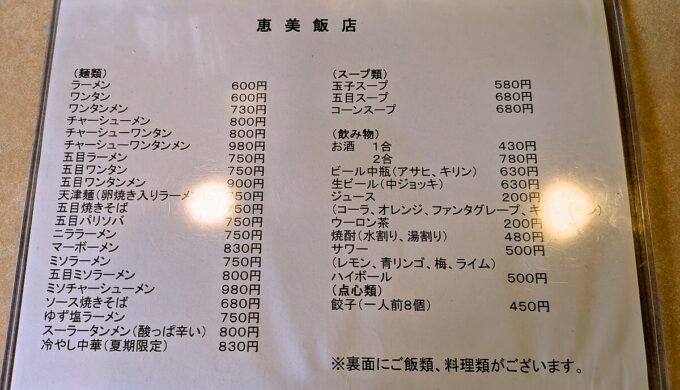 恵美飯店
（麺類）
ラーメン 600円
ワンタン 600円
ワンタンメン 730円
チャーシューメン 800円
チャーシューワンタン 800円
チャーシューワンタンメン 980円
五目ラーメン 750円
五目ワンタン 750円
五目ワンタンメン 900円
天津麺（卵焼き入りラーメン 750円
五目焼きそば 750円
五目バリソバ 750円
ニララーメン 750円
マーボーメン 830円
ミソラーメン 750円
五目ミソラーメン 800円
ミソチャーシューメン 980円
ソース焼きそば 680円
ゆず塩ラーメン 750円
スーラータンメン（酸っぱ辛い） 800円
冷やし中華（夏期限定） 830円
（スープ類）
玉子スープ 580円
五目スープ 680円
コーンスープ 680円
（飲み物）
お酒 1合 430円
2合 780円
ビール中瓶（アサヒ、キリン） 630円
生ビール（中ジョッキ） 630円
ジュース 200円
（コーラ、オレンジ、ファンタグレープ、
ウーロン茶 200円
焼酎（水割り、湯割り） 480円
サワー 500円
（レモン、青リンゴ、梅、ライム）
ハイボール 500円
（点心類）
餃子（一人前8個） 450円
※裏面にご飯類、料理類がございます。